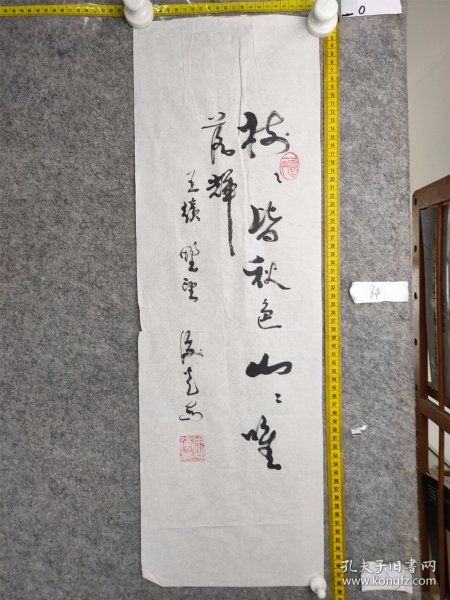 树〻皆秋色山〻唯
落辉
王绩 野望
34
孔夫子旧书网
www.kongfz.com